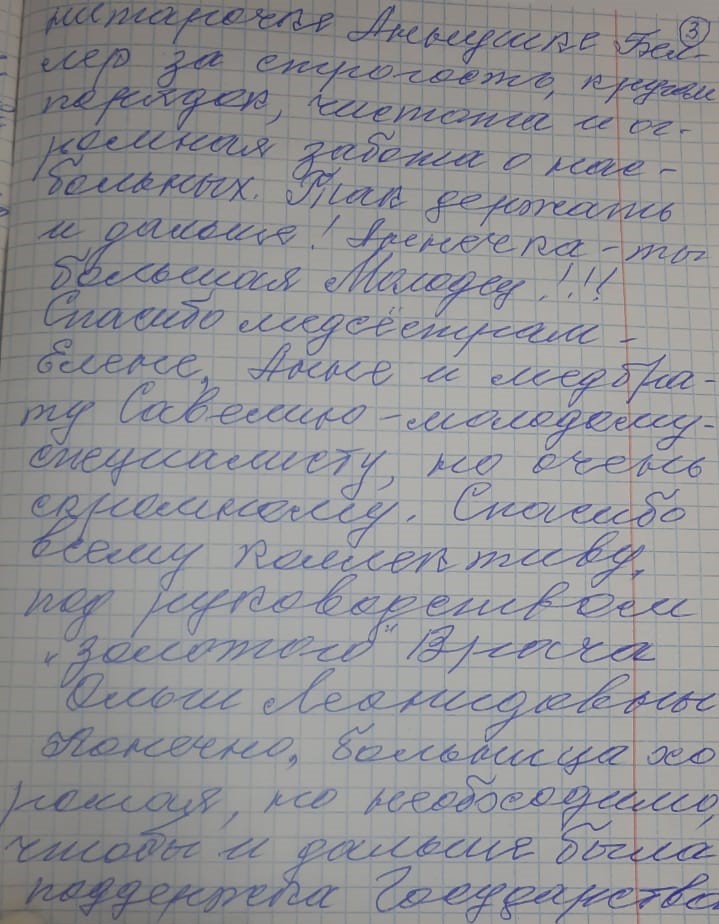 ③
нитарочке Аннушке Бел-
лер за строгость, кругом
порядок, чистота и ог-
ромная забота о нас-
больных. Так держать
и дальше! Аннечка - ты
большая Молодец!!!
Спасибо медсёстрам -
Елене, Анне и медбра-
ту Савелию - молодому-
специалисту, но очень
скромному. Спасибо
всему коллективу,
под руководством
"золотого" Врача
Ольги Леонидовны
Конечно, больница хо
рошая, но необходимо,
чтобы и дальше была
поддержка Государства